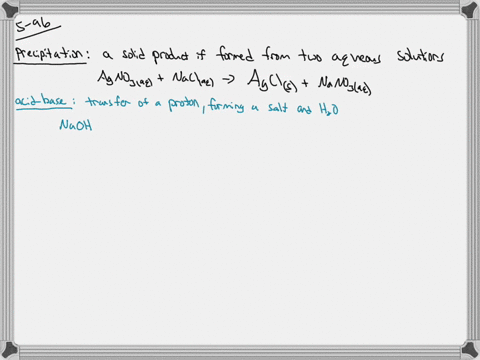 5-96
Precipitation: a solid product if formed from two aqueous solutions
AgNO₃(aq) + NaCl(aq) → AgCl(s) + NaNO₃(aq)
acid-base: transfer of a proton, forming a salt and H₂O
NaOH